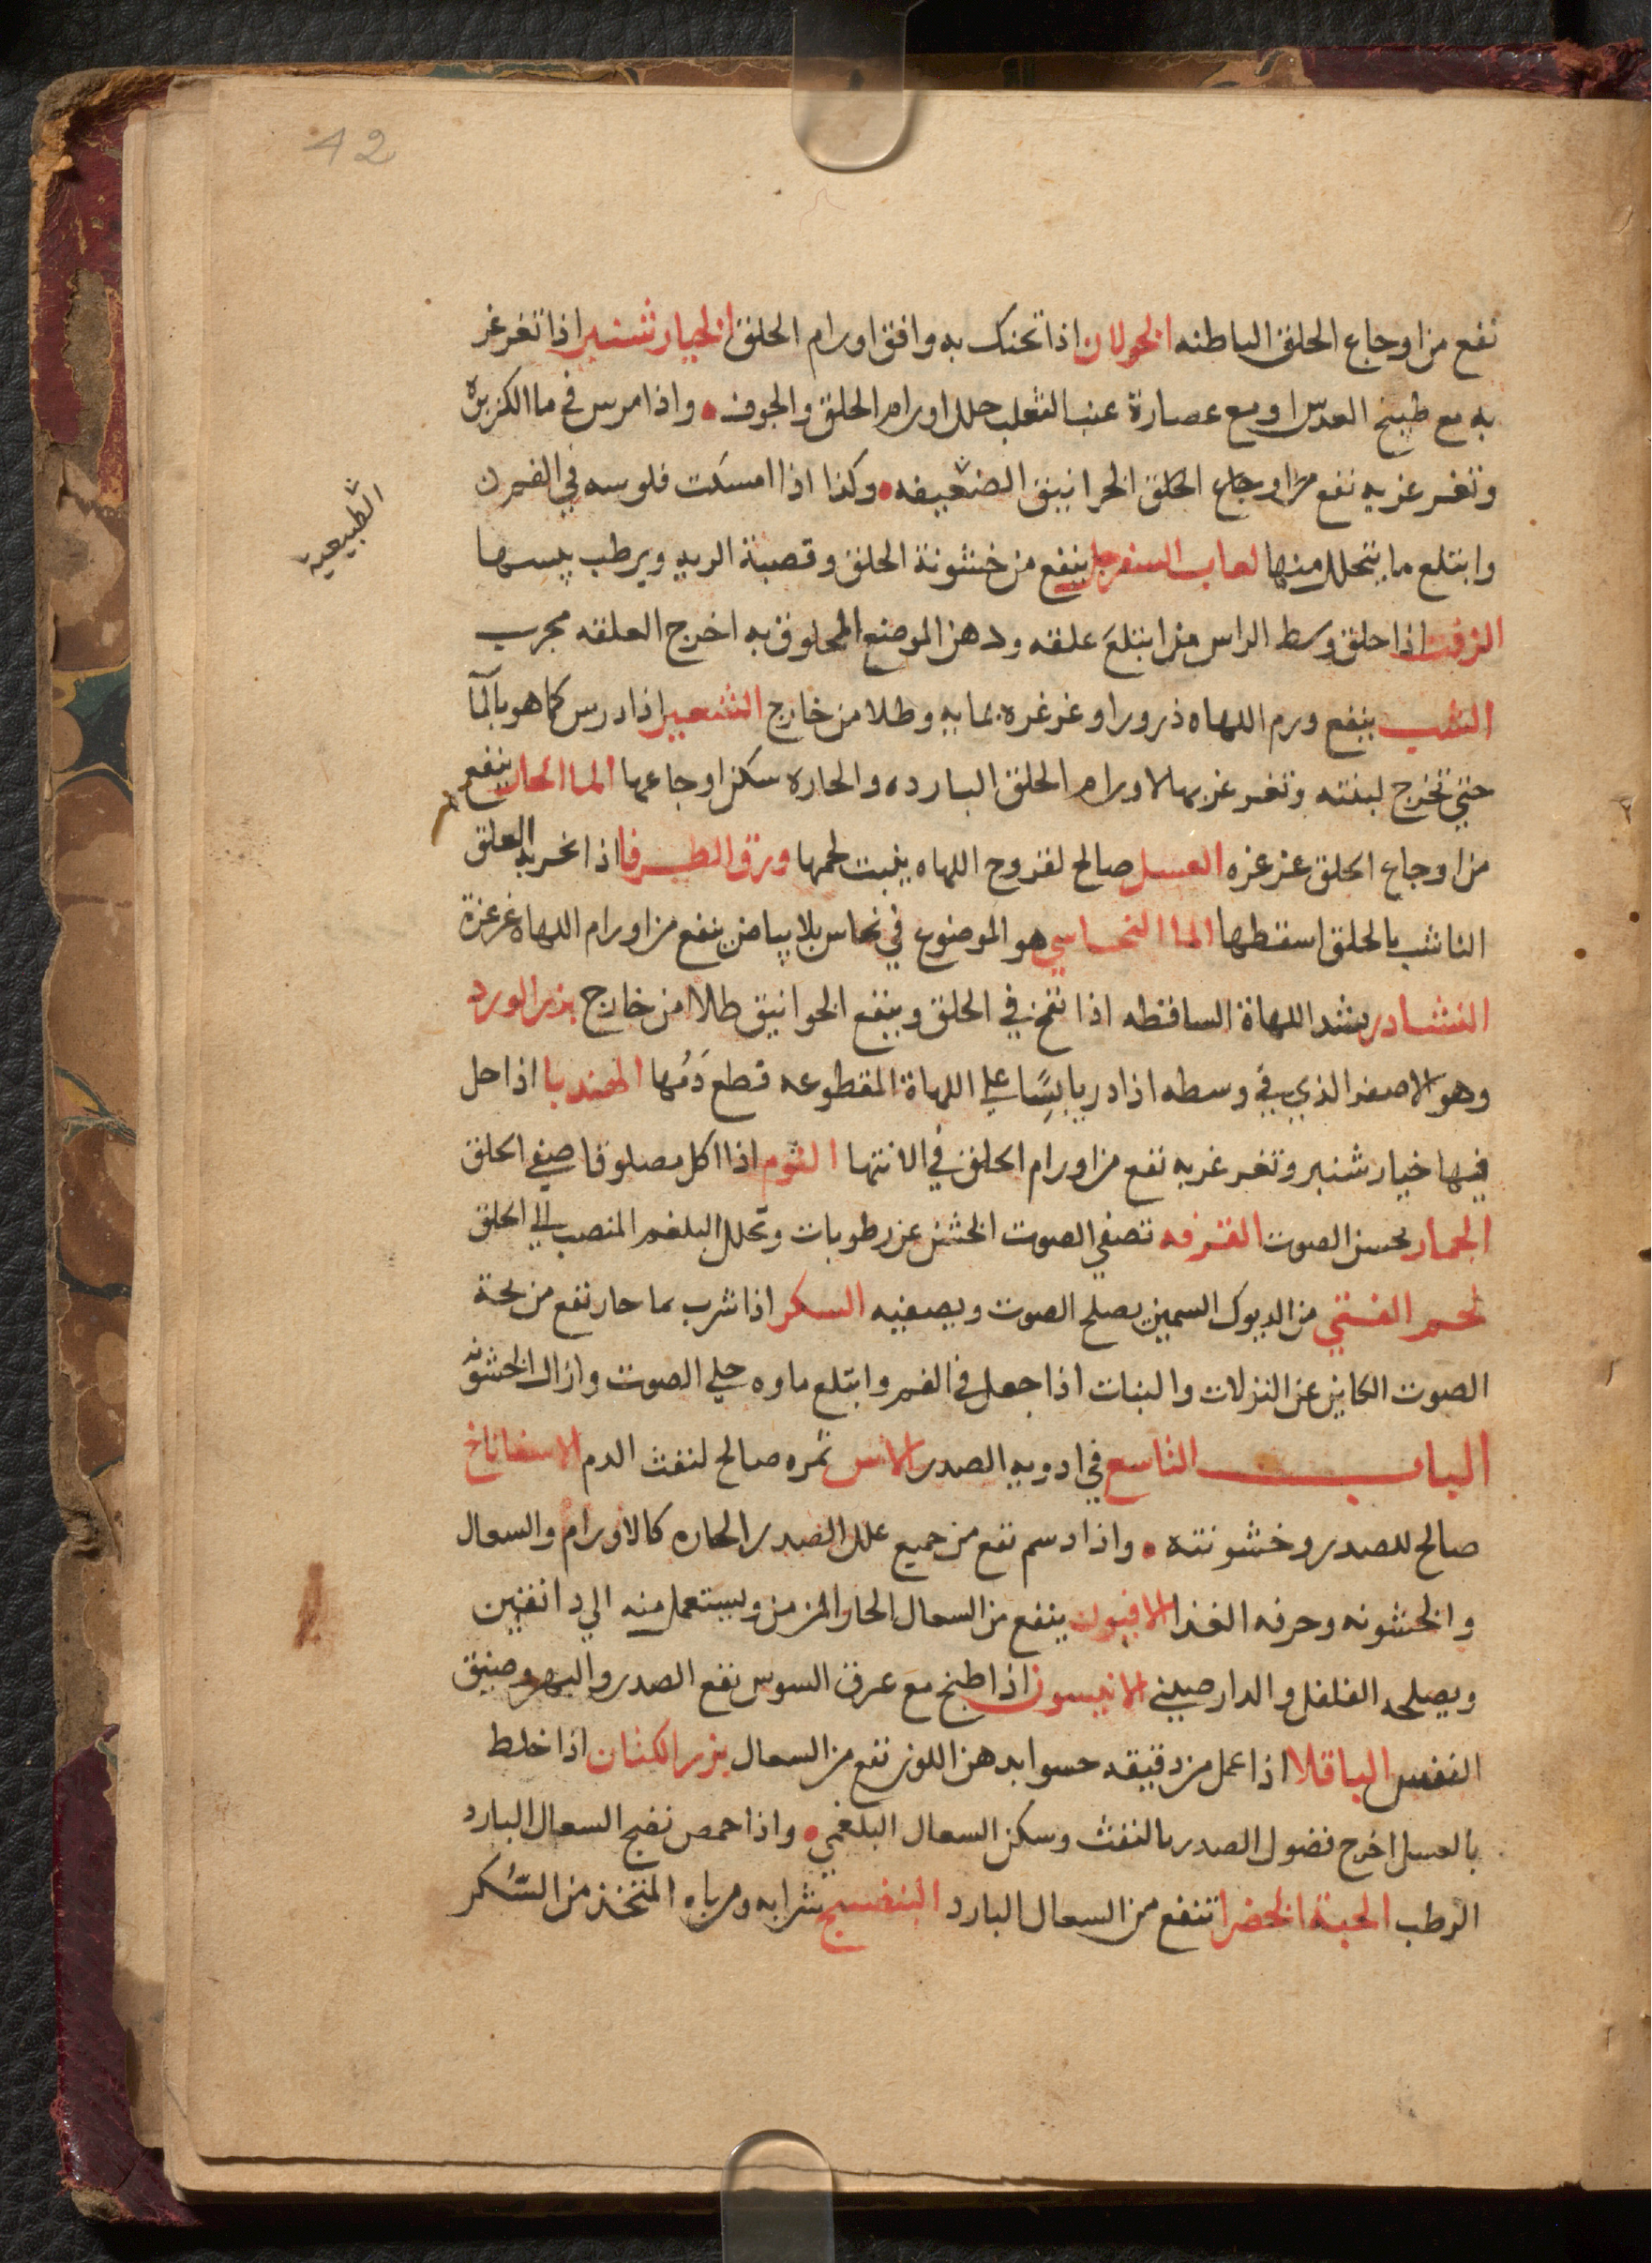 42
نفع من اوجاع الحلق الباطنه الخولان اذا تحنك به وافق اورام الحلق الخيار شنبر اذا تغرغر
به مع طبيخ العدس او مع عصارة عنب الثعلب حلل اورام الحلق والجوف • واذا مرس في ما الكزبره
وتغرغر به نفع من اوجاع الحلق الخوانيق الضعيفه • وكذا اذا امسكت فلوسه في الفم
الطبيعيه
وابتلع ما يتحلل منها لعاب السفرجل ينفع من خشونة الحلق وقصبة الريه ويرطب يبسها
الزفت اذا حلق وسط الراس من ابتلع علقه ودهن الموضع المحلوق به اخرج العلقه مجرب
الشب ينفع ورم اللهاه ذرورا وغرغره بمايه وطلا من خارج الشعير اذا درس كما هو بالما
حتي تخرج لبنته وتغرغر بها لاورام الحلق البارده والحاره سكن اوجاعها الما الحار ينفع
من اوجاع الحلق غرغره العسل صالح لقروح اللهاه ينبت لحمها ورق الطرفا اذا بخر به العلق
الناشب بالحلق اسقطها الما النحاسي هو الموضوع في نحاس بلا بياض ينفع من اورام اللهاة غرغرة
النشادر يشد اللهاة الساقطه اذا نفخ في الحلق وينفع الخوانيق طلاا من خارج بزر الورد
وهو الاصفر الذي في وسطه اذا در يابسًا علي اللهاة المقطوعه قطع دَمُها الهندبا اذا حل
فيها خيار شنبر وتغرغر به نفع من اورام الحلق في الانتها الثوم اذا اكل مصلوقا صفي الحلق
الجمار يحسن الصوت القرفه تصفي الصوت الخشن عن رطوبات وتحلل البلغم المنصب الي الحلق
لحم الفتي من الديوك السمين يصلح الصوت ويصفيه السكر اذا شرب بما حار نفع من بحة
الصوت الكاين عن النزلات والنبات اذا جعل في الفم وابتلع ماوه جلي الصوت وازال الخشونه
البـــاب التاسع في ادويه الصدر الاس ثمره صالح لنفث الدم الاسفاناخ
صالح للصدر وخشونته • واذا دسم نفع من جميع علل الصدر الحاره كالاورام والسعال
والخشونه وحرفه الغذا الافيون ينفع من السعال الحار المزمن ويستعمل منه الي دانقين
ويصلحه الفلفل والدارصيني الانيسون اذا طبخ مع عرق السوس نفع الصدر والبهر وضيق
النفس الباقلا اذا عمل من دقيقه حسوا بدهن اللوز نفع من السعال بزر الكتان اذا خلط
بالعسل اخرج فضول الصدر بالنفث وسكن السعال البلغمي • واذا حمص نضج السعال البارد
الرطب الحبة الخضرا تنفع من السعال البارد البنفسج شرابه ومرباه المتخذ من السُكر